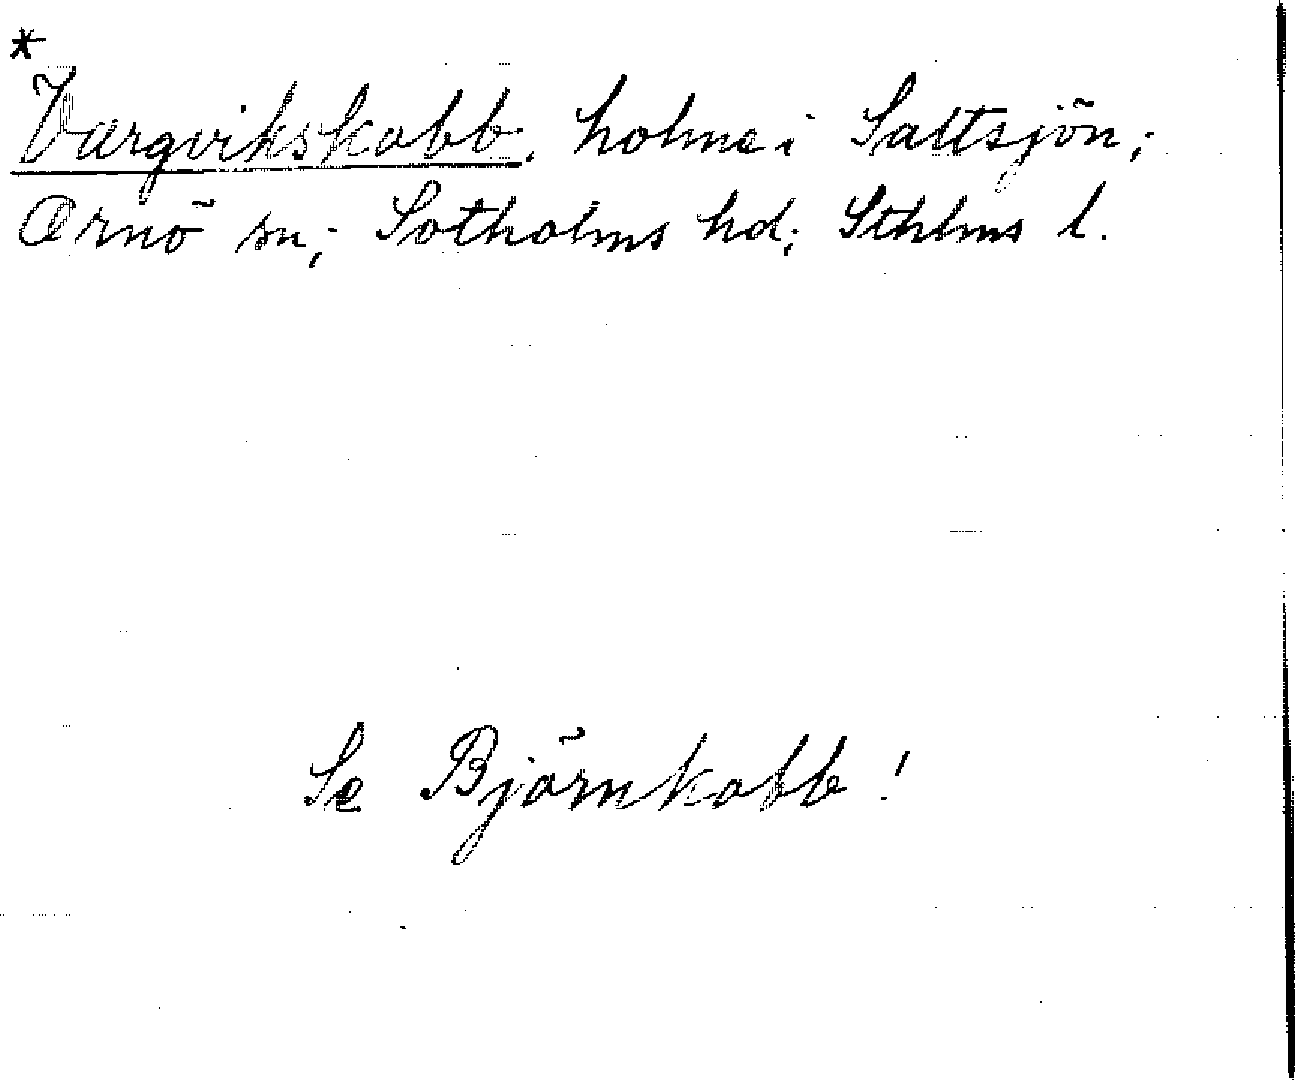 *
Vargvikskobb, holme i Saltsjön;
Ornö sn; Sotholms hd; Sthlms l.
Se Björnkobb!